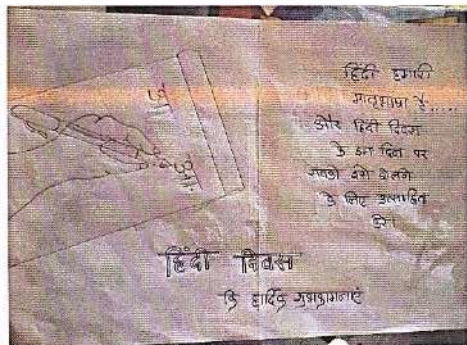 हिंदी हमारी
मातृभाषा है.....
और हिंदी दिवस
के इस दिन पर
सबको इसे बोलने
के लिए उत्साहित
करें।
हिंदी दिवस
कि हार्दिक शुभकामनाएं